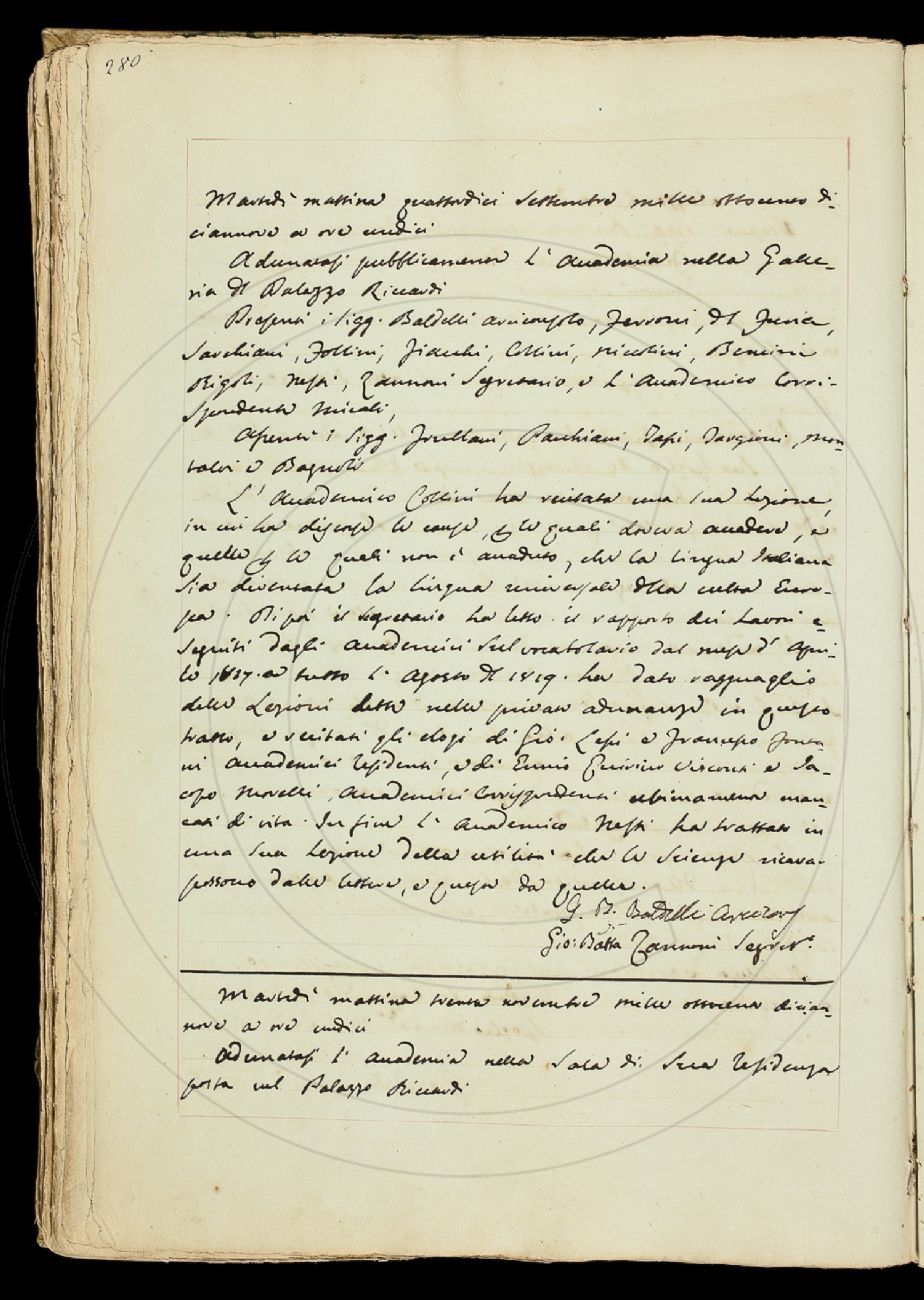 280
Martedì mattina quattordici Settembre mille ottocento di-
ciannove a ore undici
Adunatasi pubblicamente l'Accademia nella Galle-
ria del Palazzo Riccardi
Presenti i Sigg. Baldelli Arciconsolo, Ferroni, del Furia,
Sarchiani, Follini, Fiacchi, Collini, Niccolini, Bencini
Rigoli, Nesti, Zannoni Segretario, e l'Accademico Corri-
spondente Micali,
Assenti i Sigg. Frullani, Pacchiani, Targioni, Mon-
talvi e Bagnoli
L'Accademico Collini ha recitata una sua Lezione,
in cui ha discorse le cause, per le quali doveva accadere, e
quelle per le quali non è accaduto, che la lingua Italiana
sia diventata la lingua universale della culta Euro-
pa. Di poi il Segretario ha letto il rapporto dei lavori e-
seguiti dagli Accademici sul vocabolario dal mese d'Apri-
le 1817. a tutto l'Agosto del 1819. ha dato ragguaglio
delle Lezioni dette nelle private adunanze in questo
tratto, e recitati gli elogi di Gio. Lessi e Francesco Fonta-
ni Accademici residenti, e di Ennio Quirino Visconti e Ja-
copo Morelli, Accademici Corrispondenti ultimamente man-
cati di vita. In fine l'Accademico Nesti ha trattato in
una sua Lezione della utilità che le Scienze ricavar
possono dalle lettere, e queste da quelle.
G. B. Baldelli Arcicons
Gio: Batta Zannoni Segret.º
Martedì mattina trenta novembre mille ottocento dician-
nove a ore undici
Adunatasi l'Accademia nella Sala di Sua residenza
posta nel Palazzo Riccardi